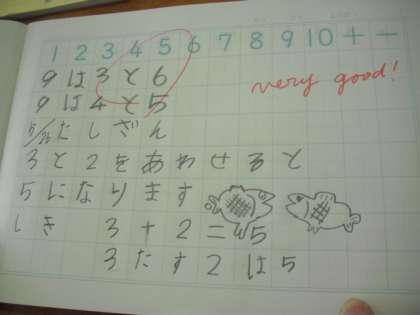 1 2 3 4 5 6 7 8 9 10 + −
9は3と6
very good!
9は4と5
5/26 たしざん
3と2をあわせると
5になります
しき 3+2=5
3たす2は5